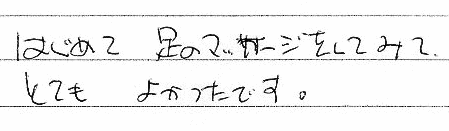 はじめて 足のマッサージをしてみて、
とても よかったです。